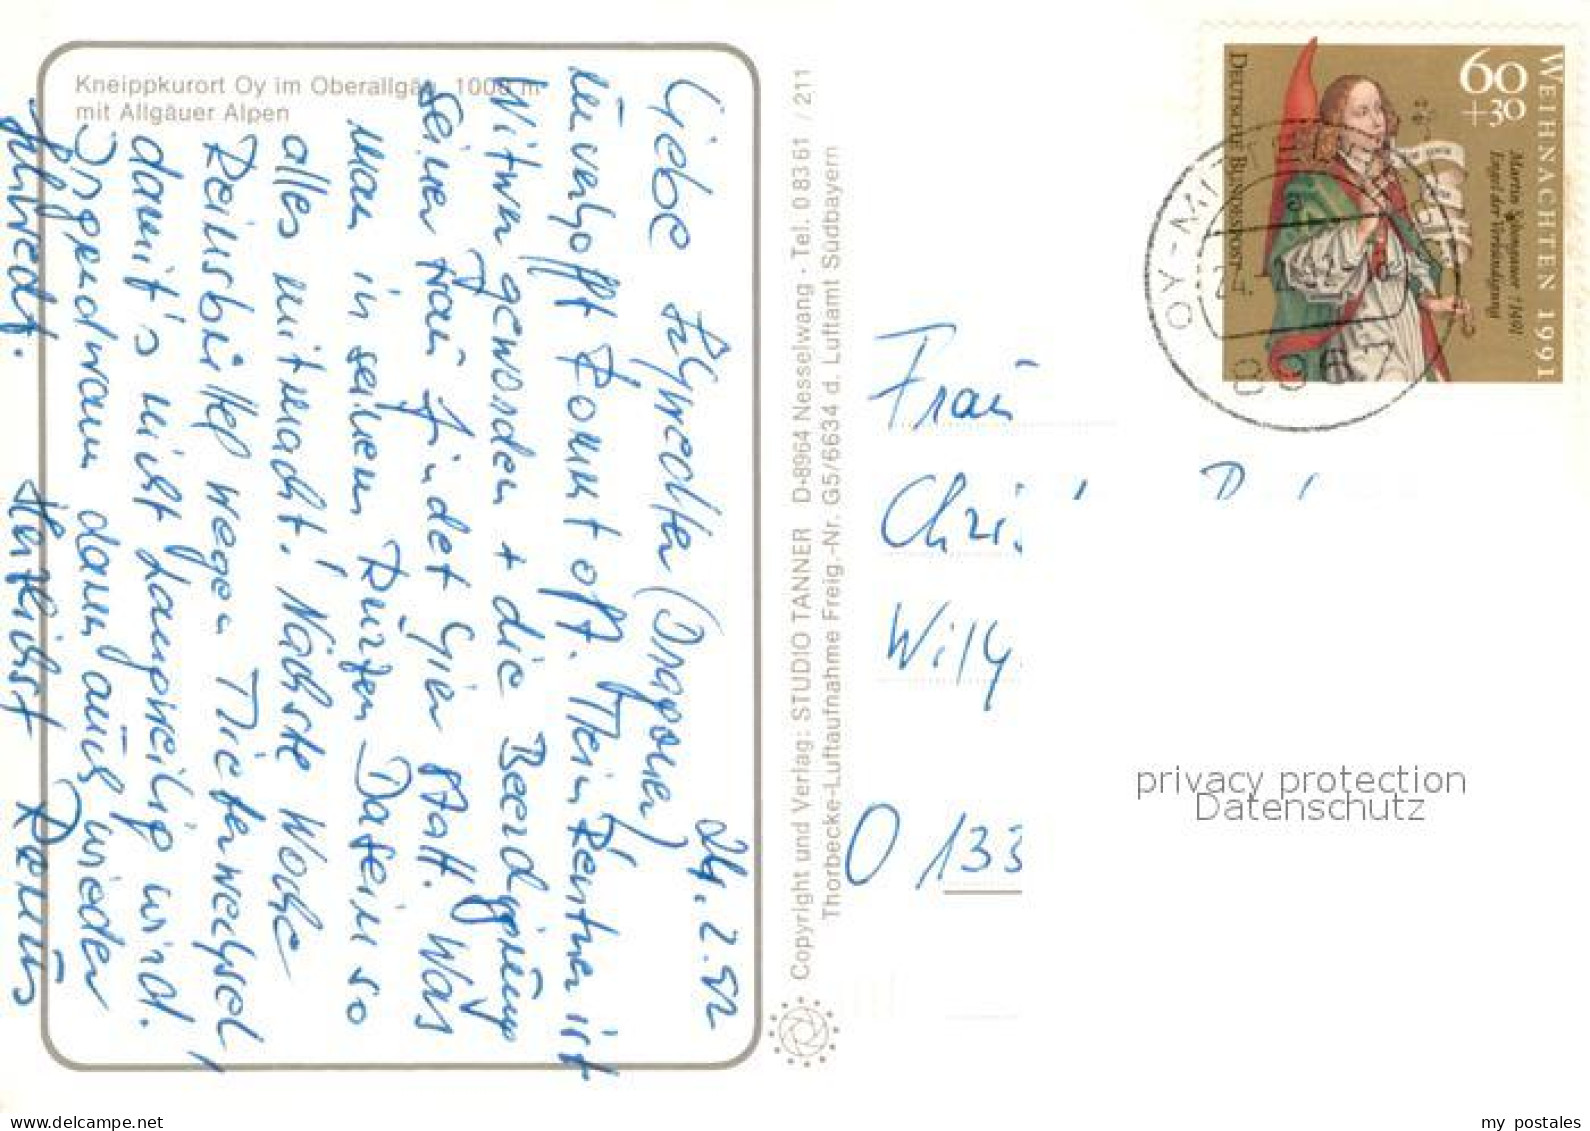 Kneippkurort Oy im Oberallgäu, 1000 m
mit Allgäuer Alpen
24.2.92
Liebe
unverhofft kommt oft. Mein Rentner ist
Witwer geworden + die Beerdigung
seiner Frau findet hier statt. Was
man in seinem kurzen Dasein so
alles mitmacht. Nächste Woche
wegen Mieterwechsel,
damit's nicht langweilig wird.
Irgendwann dann aus wieder
Herzlichst
Copyright und Verlag: STUDIO TANNER D-8964 Nesselwang · Tel. 0 83 61 / 211
Thorbecke-Luftaufnahme Freig.-Nr. G5/6634 d. Luftamt Südbayern
Frau
Chri
Willy
O 133
WEIHNACHTEN 1991
60
+30
Martin Schongauer †1491
Engel der Verkündigung
DEUTSCHE BUNDESPOST
OY-MITTELBERG
privacy protection
Datenschutz
my postales